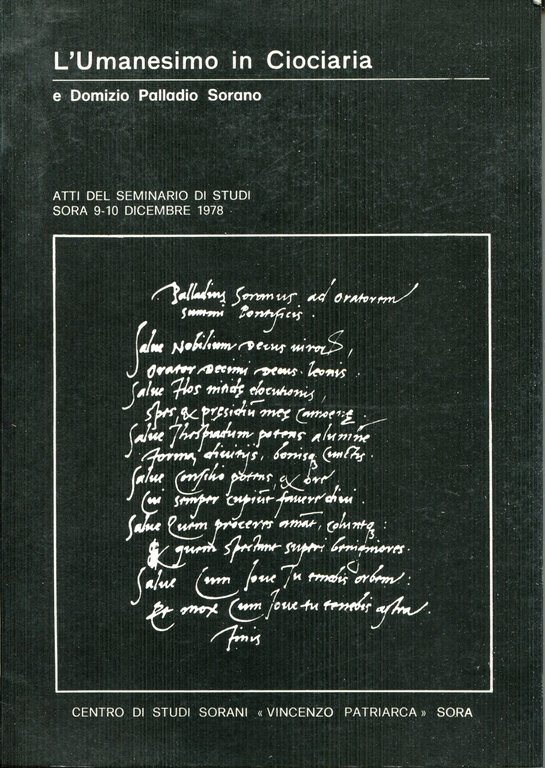 L'Umanesimo in Ciociaria
e Domizio Palladio Sorano
ATTI DEL SEMINARIO DI STUDI
SORA 9-10 DICEMBRE 1978
Palladius Soranus ad oratorem
summi Pontificis.
Salve Nobilium Decus
Orator Decimi Decus Leonis.
Salve Flos nitidę elocutionis,
Spes, & presidiū meę camoenę.
Salve Thespiadum potens alumne
Forma, divitijs, bonisq cunctis.
Salve Consilio potens, & ore
Cui semper cupiūt favere divi.
Salve Quem proceres amāt, coluntq:
& quem spectant superi benigniores.
Salve Cum Iove Tu tenebis orbem:
Et mox Cum Iove tu tenebis astra.
Finis
CENTRO DI STUDI SORANI « VINCENZO PATRIARCA » SORA